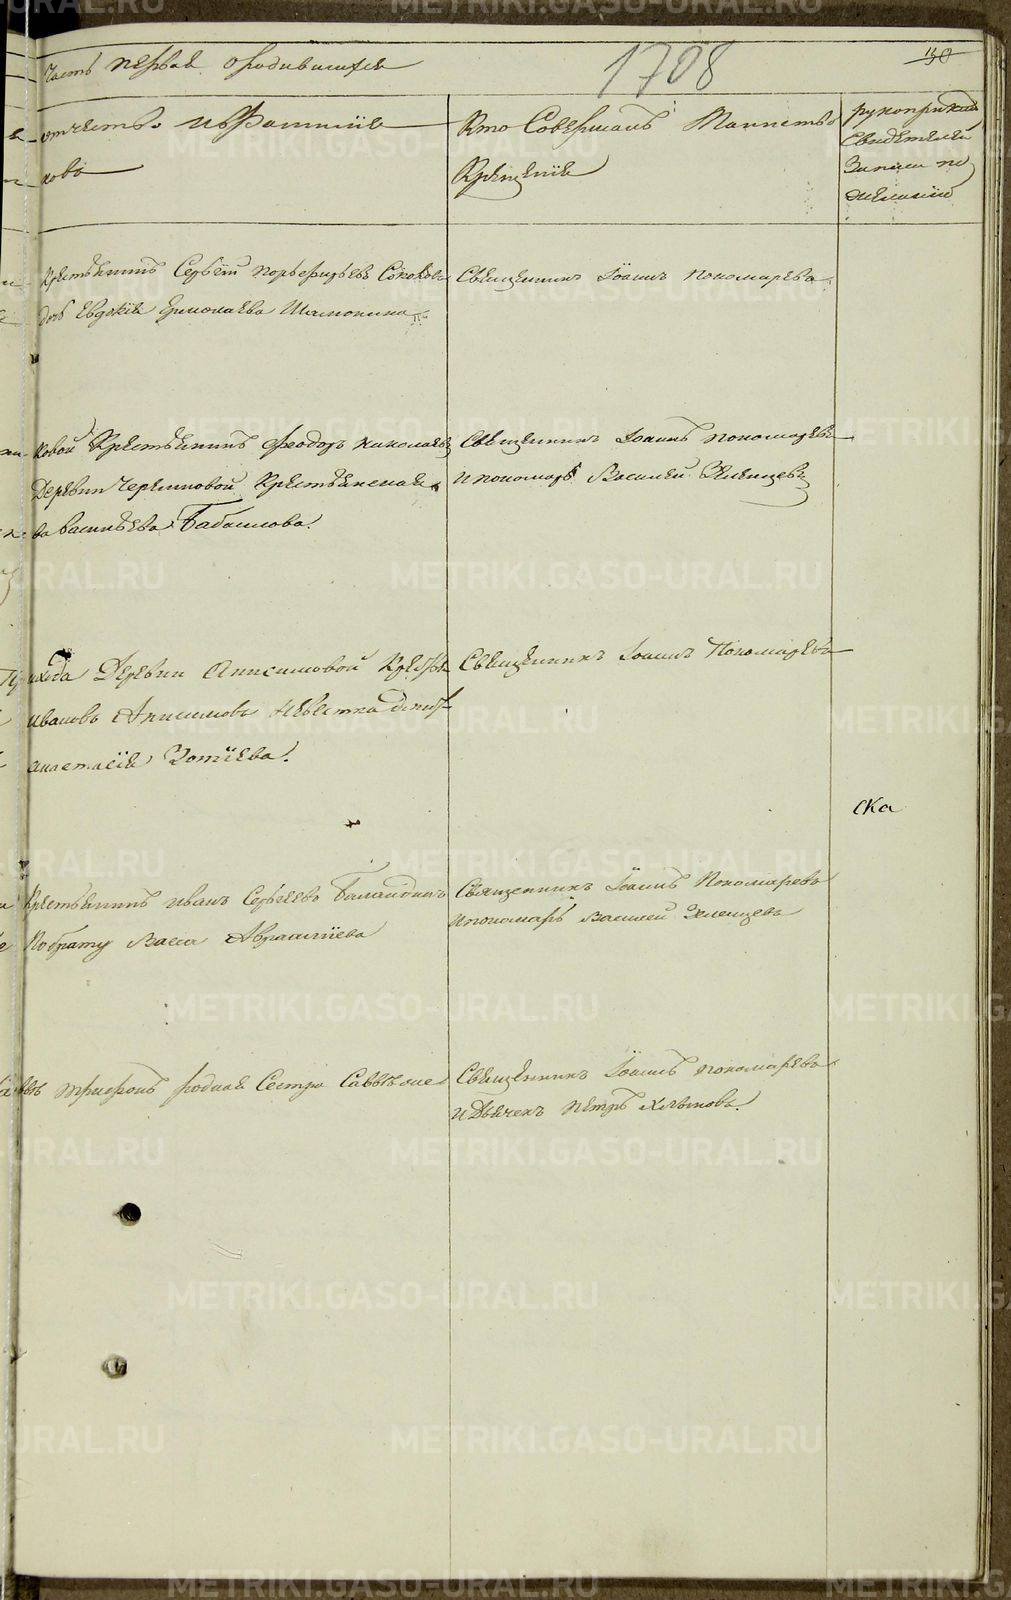 Часть первая о родившихся
1708
30
отчество и Фамилія
ковъ
Кто Совершалъ Таинство
Крещеніе
рукоприклад
Свидетелей
Записи по
желанію
Крестьянинъ Сергѣй Порфирьевъ
дочь Евдокія Ермолаева
Священникъ Іоаннъ Пономаревъ
ковой Крестьянинъ Феодоръ Николаевъ
Деревни Черемновой Крестьянская
ва Васильева Бабайлова.
Священникъ Іоаннъ Пономаревъ
и пономарь Василей Зеленцевъ
хода Деревни Анисимовой Крестья
Ивановъ Анисимовъ Невестка
Анастасія Зотіева.
Священникъ Іоаннъ Пономаревъ
ска
Крестьянинъ Иванъ Сергѣевъ
По брату Васса Аврааміева
Священникъ Іоаннъ Пономаревъ
и пономарь Василей Зеленцевъ
Трифонъ родная Сестра
Священникъ Іоаннъ Пономаревъ
и Дьячекъ Петръ Хлыновъ.
METRIKI.GASO-URAL.RU